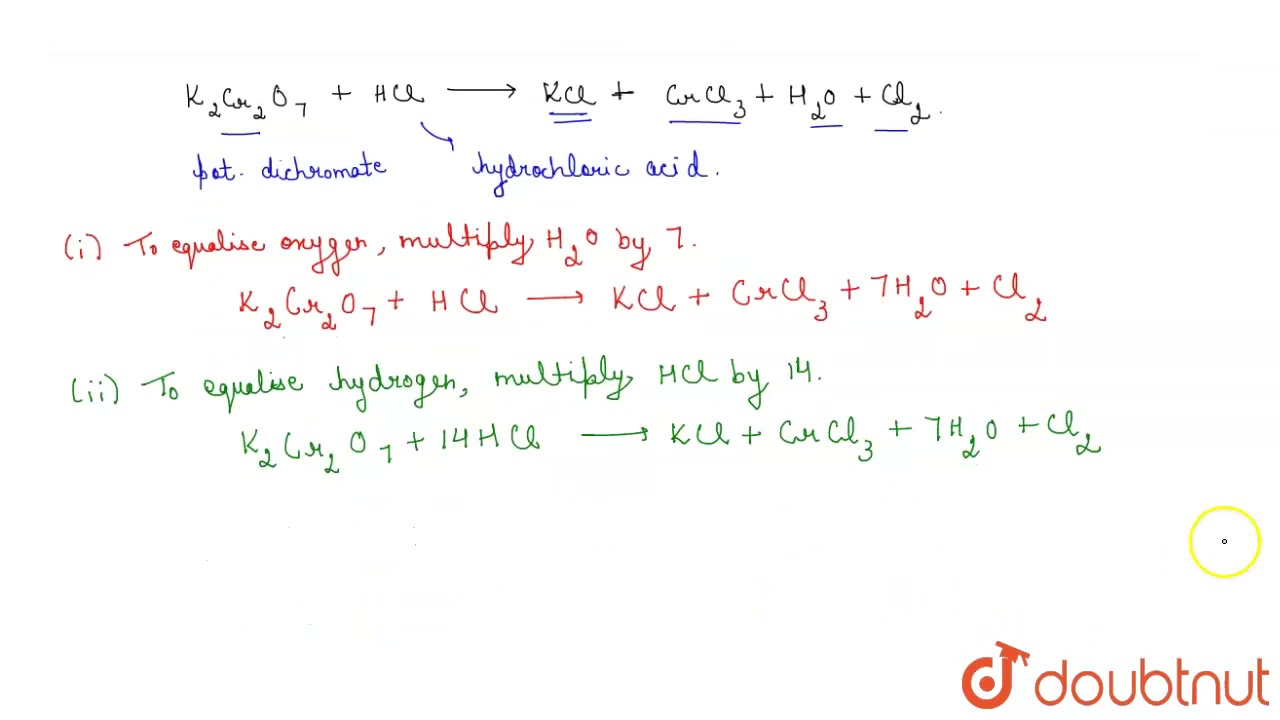 K₂Cr₂O₇ + HCl → KCl + CrCl₃ + H₂O + Cl₂.
pot. dichromate hydrochloric acid.
(i) To equalise oxygen, multiply H₂O by 7.
K₂Cr₂O₇ + HCl → KCl + CrCl₃ + 7H₂O + Cl₂
(ii) To equalise hydrogen, multiply HCl by 14.
K₂Cr₂O₇ + 14HCl → KCl + CrCl₃ + 7H₂O + Cl₂
doubtnut